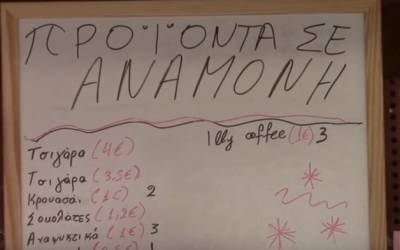 ΠΡΟΪΟΝΤΑ ΣΕ
ΑΝΑΜΟΝΗ
Illy coffee (1€) 3
Τσιγάρα (4€)
Τσιγάρα (3.5€)
Κρουασάν (1€) 2
Σοκολάτες (1,2€)
Αναψυκτικά (1€) 3